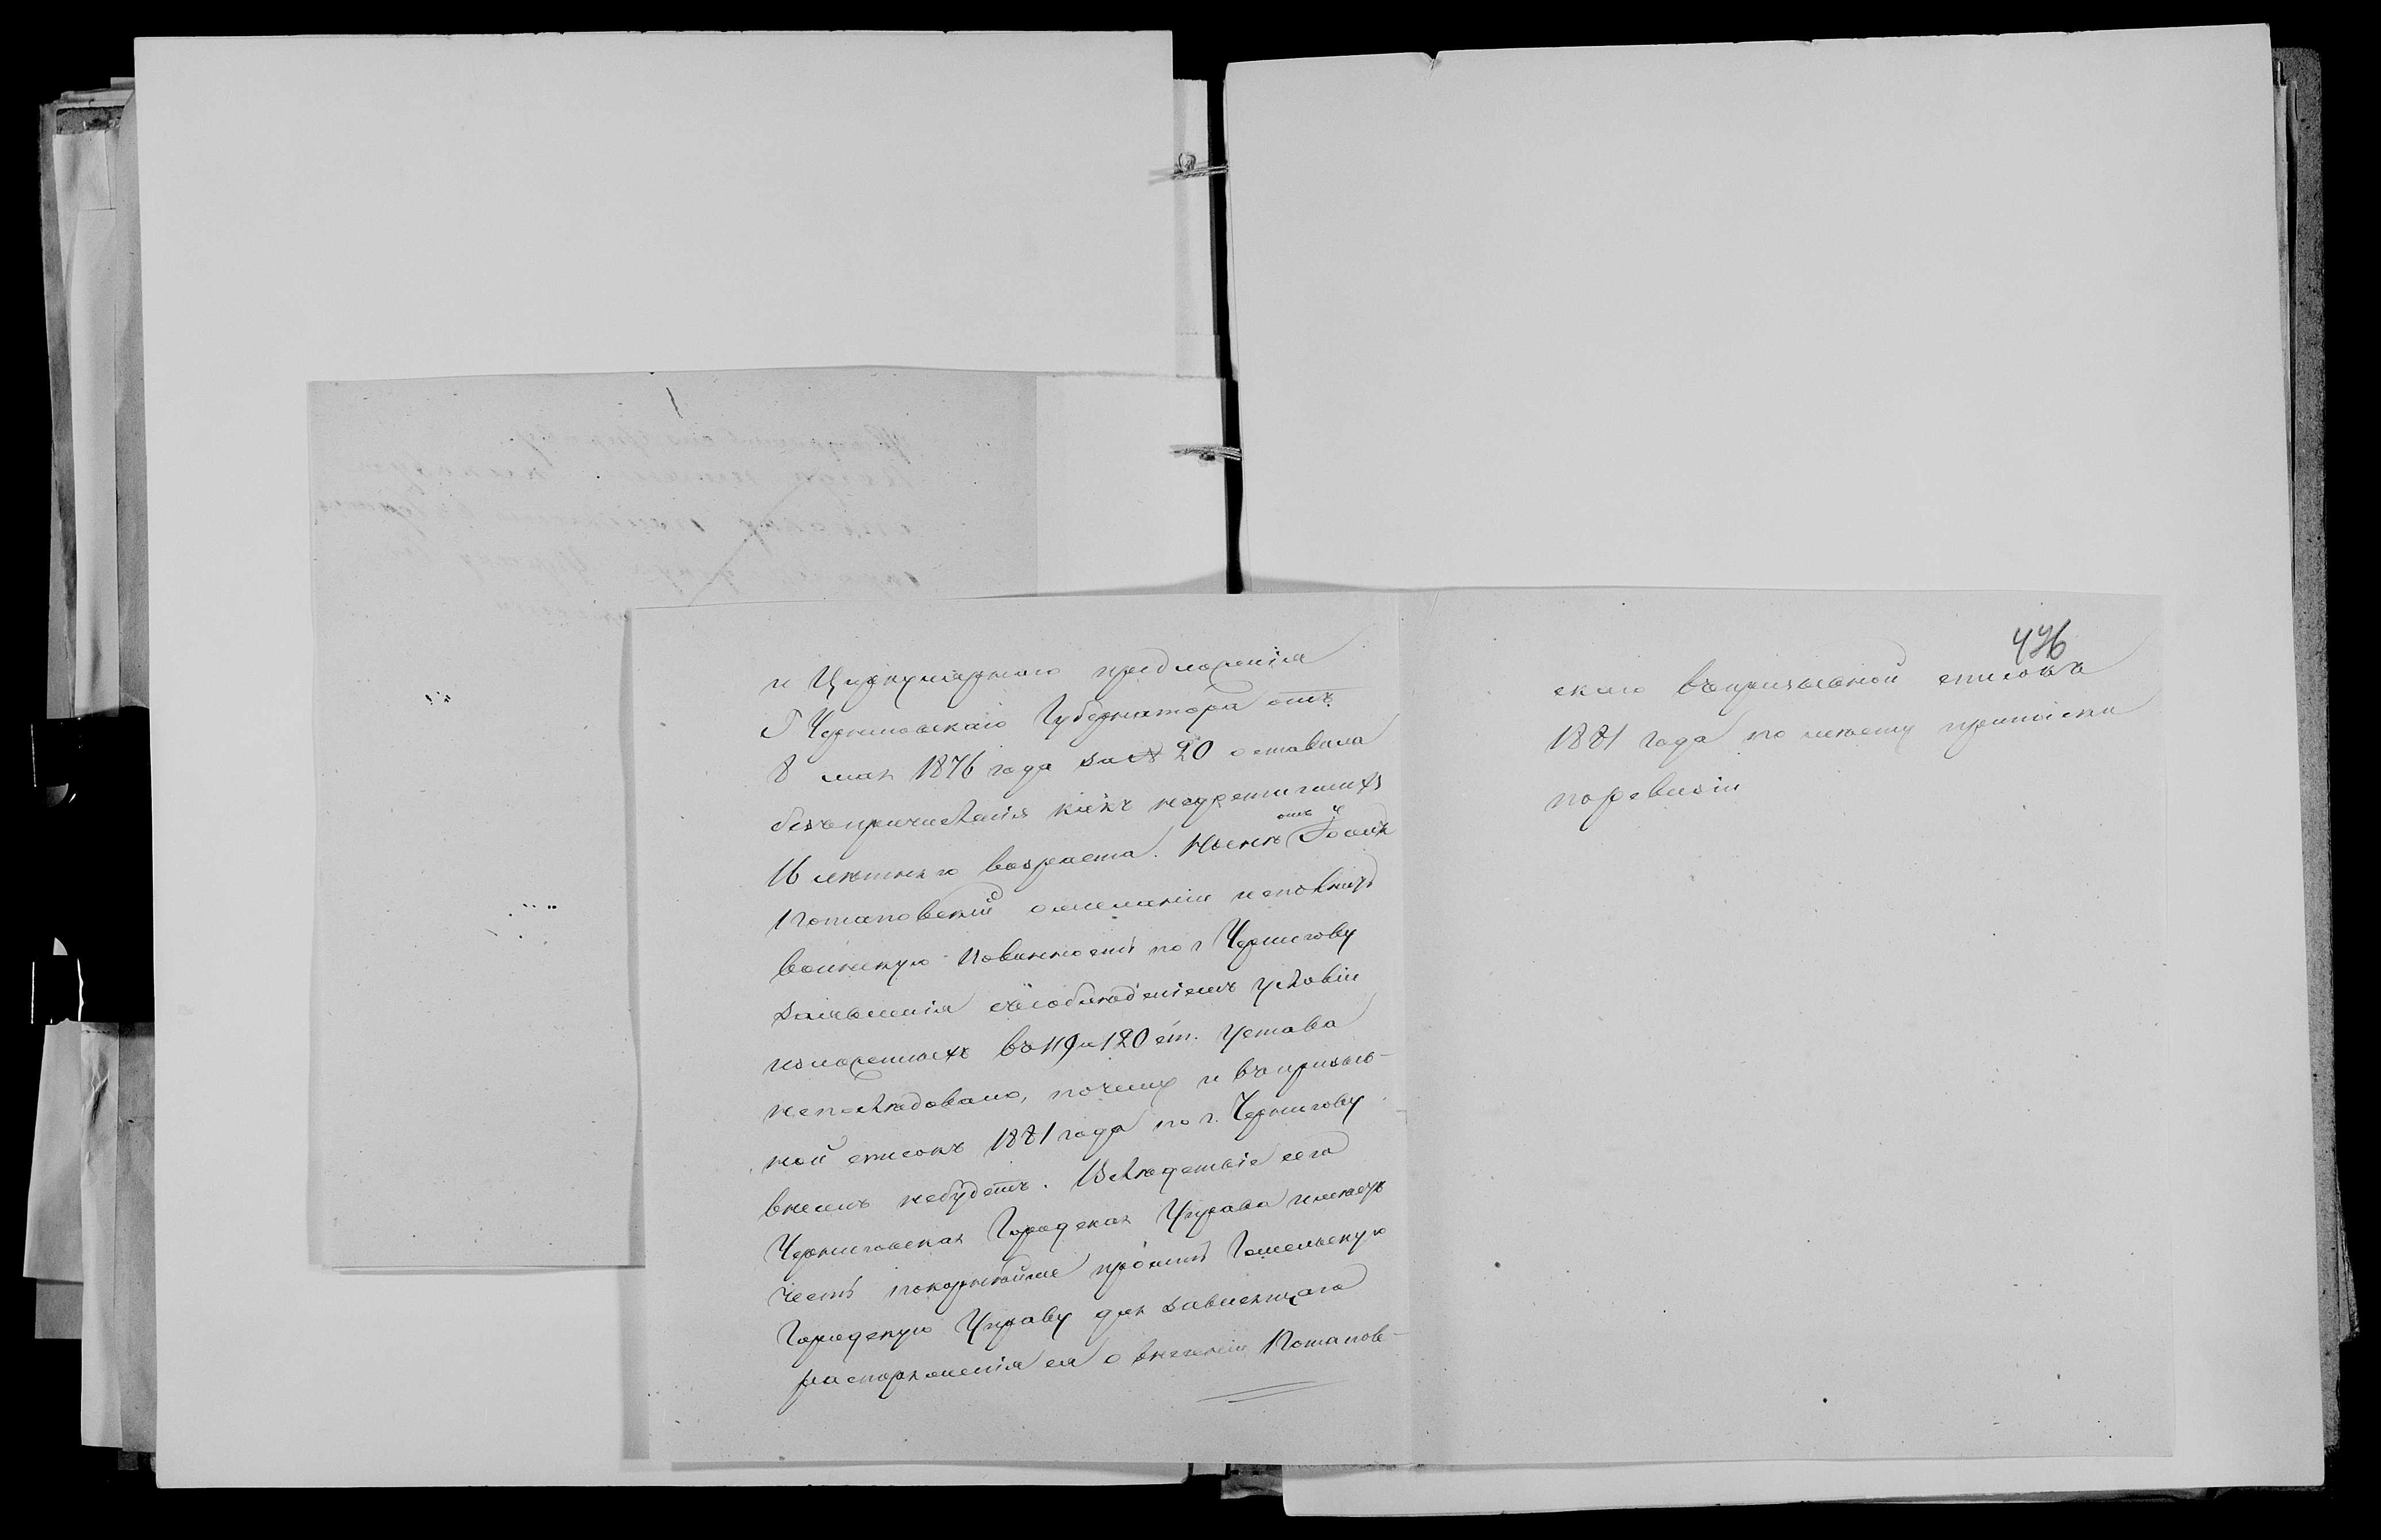 и Циркулярнаго предложенія
Г Черниговскаго Губернатора отъ
8 мая 1876 года за № 20 оставила
безъ причисленія какъ недостигшихъ
16 лѣтняго возраста. Нынѣ отъ
Потаповскій о желаніи исполнить
воинскую повинность по г Чернигову
заявленія съ соблюденіемъ условій
изложенныхъ въ 119 и 120 ст. Устава
непослѣдовало, почему и въ призыв-
ной списокъ 1881 года по г. Чернигову
внесенъ небудетъ. Вслѣдствіе сего
Черниговская Городская Управа имѣетъ
честь покорнѣйше просить Гомельскую
Городскую Управу для зависящаго
распоряженія ея о внесеніи Потапов-
476
скаго въ призывной списокъ
1881 года по мѣсту приписки
по ревизіи